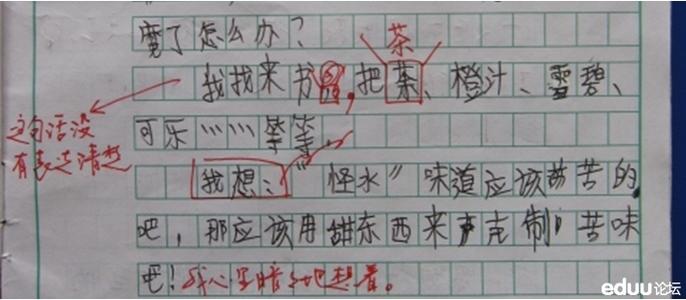 魔了怎么办?
茶
我找来书,把菜、橙汁、雪碧、
可乐……等等。
这句话没
有表达清楚
我想:“怪水”味道应该苦的
吧,那应该用甜东西来克制苦味
吧!我心里暗暗地想着。
eduu论坛